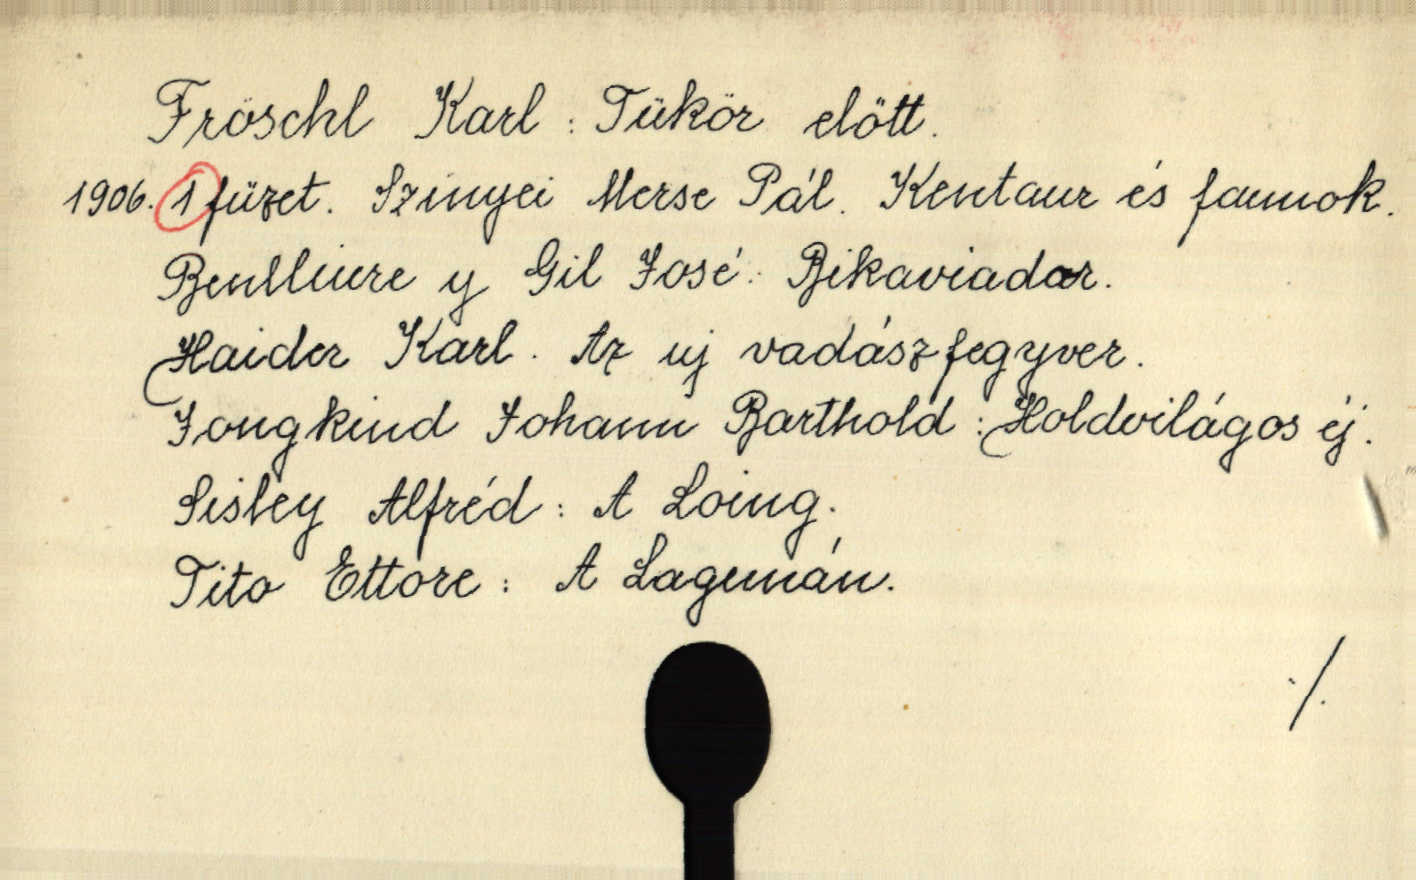 Fröschl Karl : Tükör előtt.
1906. 1 füzet. Szinyei Merse Pál. Kentaur és faunok.
Benlliure y Gil José : Bikaviador.
Haider Karl. Az uj vadászfegyver.
Jongkind Johann Barthold : Holdvilágos éj.
Sisley Alfréd : A Loing.
Tito Ettore : A Lagunán.
./.